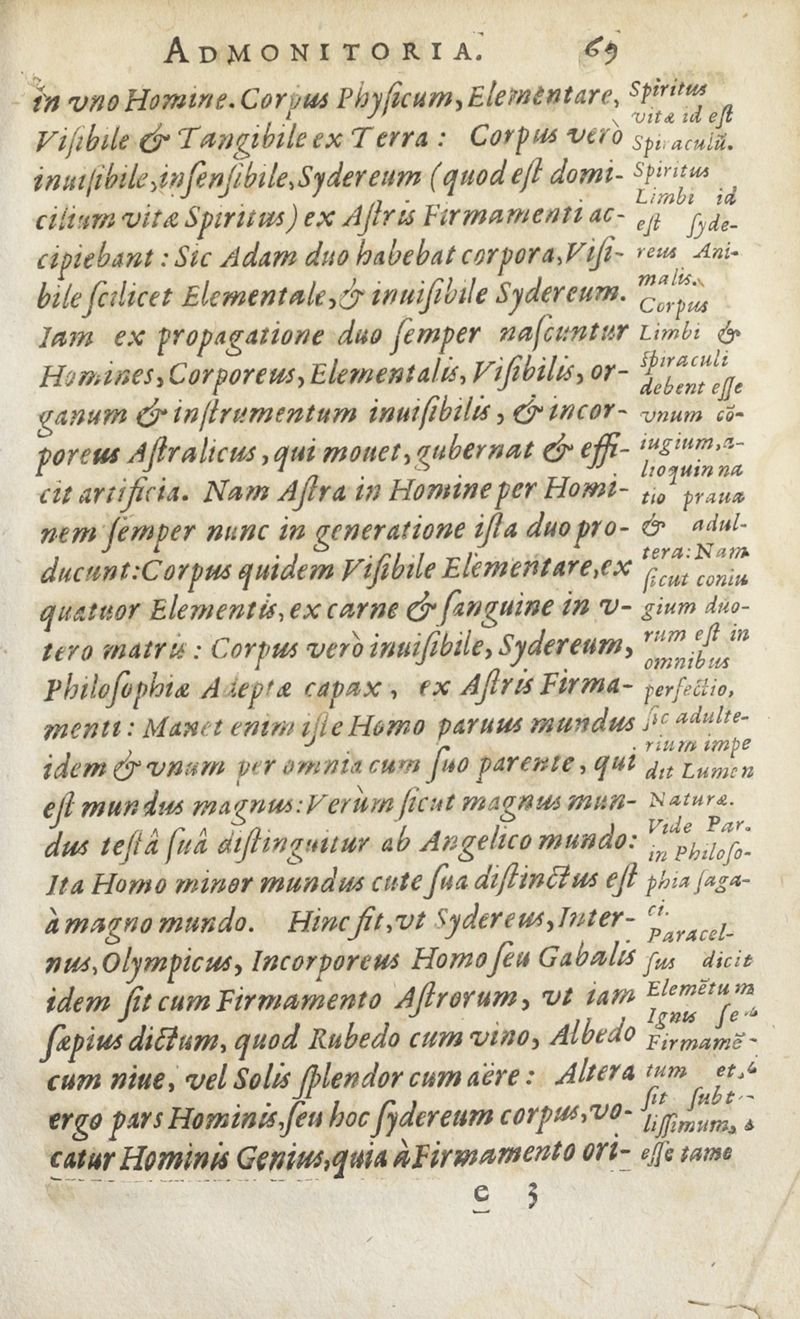 ADMONITORIA. 69
in vno Homine. Corpus Phyſicum, Elementare,
Viſibile & Tangibile ex Terra : Corpus verò
inuiſibile, inſenſibile, Sydereum (quod eſt domi-
cilium vitæ Spiritus) ex Aſtris Firmamenti ac-
cipiebant : Sic Adam duo habebat corpora, Viſi-
bile ſcilicet Elementale, & inuiſibile Sydereum.
Iam ex propagatione duo ſemper naſcuntur
Homines, Corporeus, Elementalis, Viſibilis, or-
ganum & inſtrumentum inuiſibilis, & incor-
poreus Aſtralicus, qui mouet, gubernat & effi-
cit artificia. Nam Aſtra in Homine per Homi-
nem ſemper nunc in generatione iſta duo pro-
ducunt: Corpus quidem Viſibile Elementare, ex
quatuor Elementis, ex carne & ſanguine in v-
tero matris : Corpus verò inuiſibile, Sydereum,
Philoſophiæ Adeptæ capax, ex Aſtris Firma-
menti : Manet enim iſte Homo paruus mundus
idem & vnum per omnia cum ſuo parente, qui
eſt mundus magnus: Verùm ſicut magnus mun-
dus teſtâ ſuâ diſtinguitur ab Angelico mundo:
Ita Homo minor mundus cute ſua diſtinctus eſt
à magno mundo. Hinc fit, vt Sydereus, Inter-
nus, Olympicus, Incorporeus Homo ſeu Gabalis
idem fit cum Firmamento Aſtrorum, vt iam
ſæpius dictum, quod Rubedo cum vino, Albedo
cum niue, vel Solis ſplendor cum aëre : Altera
ergo pars Hominis, ſeu hoc ſydereum corpus, vo-
catur Hominis Genius, quia à Firmamento ori-
Spiritus
vitæ id eſt
Spiraculũ.
Spiritus
Limbi id
eſt ſyde-
reus Ani-
malis.
Corpus
Limbi &
ſpiraculi
debent eſſe
vnum cō-
iugium, a-
lioquin na
tio praua
& adul-
tera: Nam
ſicut coniu
gium duo-
rum eſt in
omnibus
perfectio,
ſic adulte-
rium impe
dit Lumen
Naturæ.
Vide Par.
in Philoſo-
phia ſaga-
ci.
Paracel-
ſus dicit
Elemẽtum
Ignis
Firmamẽ-
tum
ſit
liſſimum,
eſſe tame
e 3